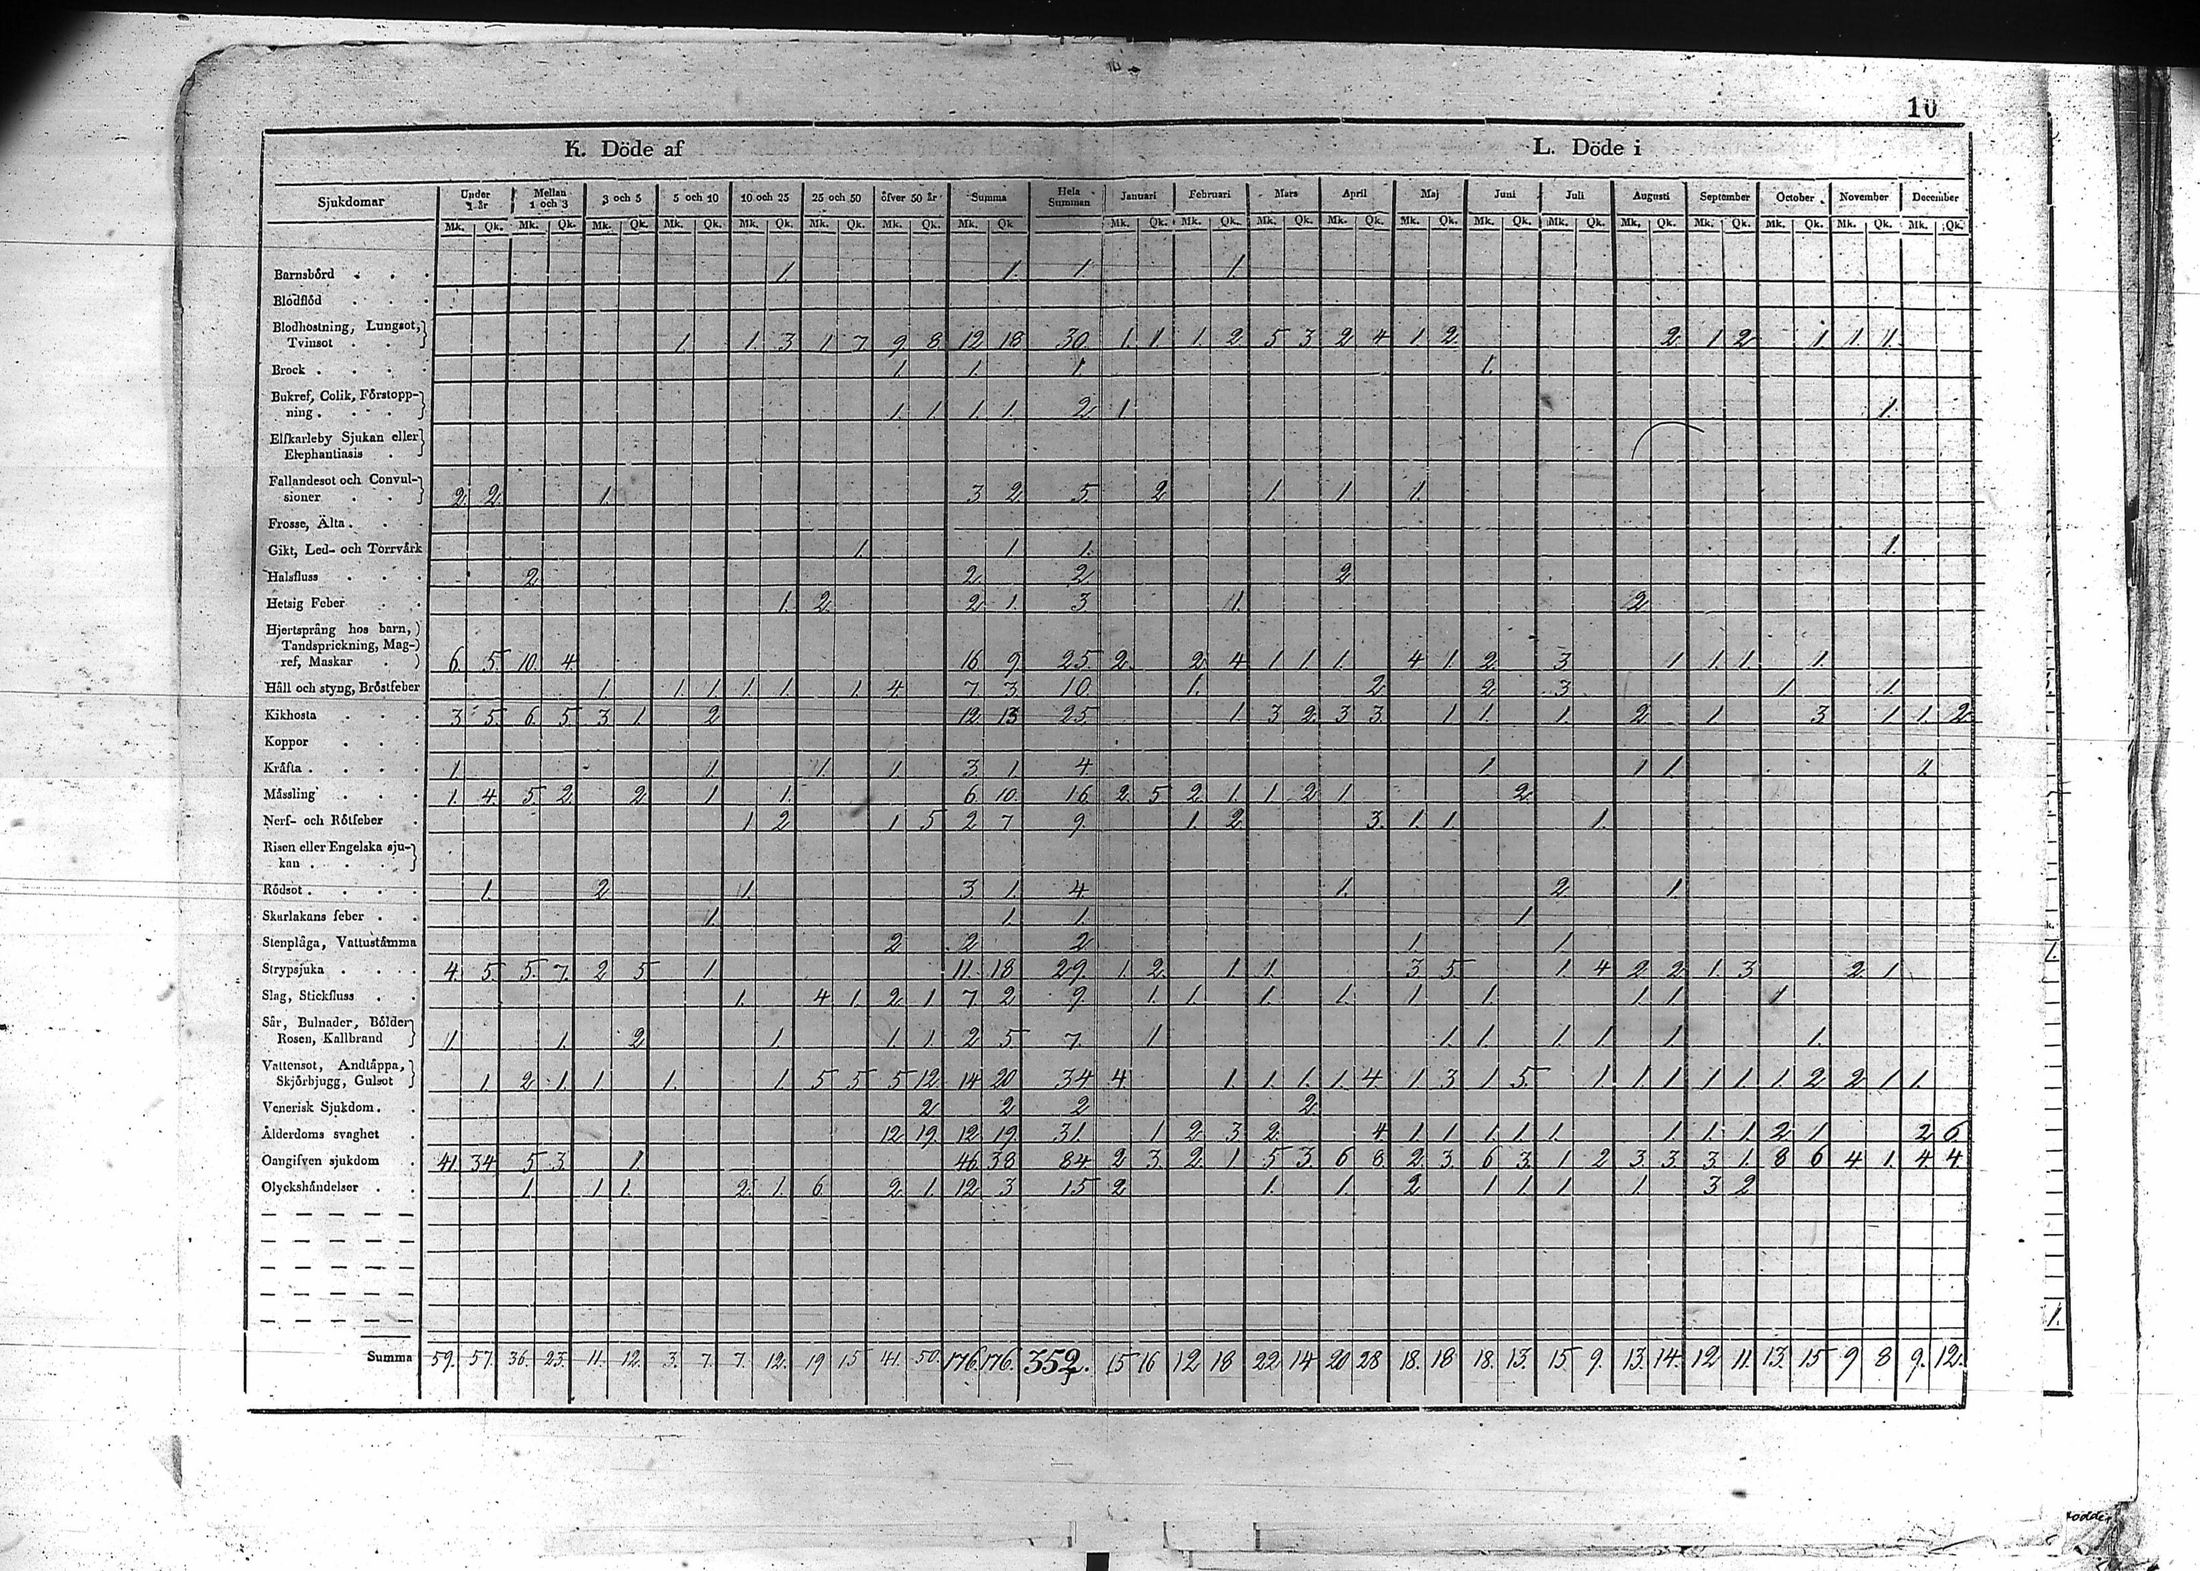 10
K. Döde af L. Döde i
Sjukdomar Under 1 år Mellan 1 och 3 3 och 5 5 och 10 10 och 25 25 och 50 öfver 50 år Summa Hela Summan Januari Februari Mars April Maj Juni Juli Augusti September October November December
Mk. Qk. Mk. Qk. Mk. Qk. Mk. Qk. Mk. Qk. Mk. Qk. Mk. Qk. Mk. Qk Mk. Qk. Mk. Qk. Mk. Qk. Mk. Qk. Mk. Qk. Mk. Qk. Mk. Qk. Mk. Qk. Mk. Qk. Mk. Qk. Mk. Qk. Mk. Qk.
Barnsbörd . . . 1. 1. 1 1.
Blodflöd . . .
Blodhostning, Lungsot,
Tvinsot . . 1. 1. 3 1. 7. 9 8. 12 18 30. 1. 1 1. 2 5 3 2 4 1 2. 2. 1 2 1 1 1.
Brock . . . . 1. 1. 1. 1.
Bukref, Colik, Förstopp-
ning . . . . 1. 1. 1. 1. 2 1 1.
Elfkarleby Sjukan eller
Elephantiasis .
Fallandesot och Convul-
sioner . . 2. 2. 1. 3 2. 5. 2 1. 1 1.
Frosse, Älta . . .
Gikt, Led- och Torrvärk 1. 1 1. 1.
Halsfluss . . . 2 2. 2. 2
Hetsig Feber . . 1. 2. 2. 1. 3 1. 2
Hjertsprång hos barn,
Tandsprickning, Mag-
ref, Maskar . 6. 5. 10. 4 16 9 25. 2. 2 4 1 1 1. 4 1. 2. 3 1 1 1 1.
Håll och styng, Bröstfeber 1. 1. 1. 1. 1. 1. 4. 7. 3 10. 1. 2. 2 3 1 1.
Kikhosta . . . 3 5. 6. 5 3 1 2 12. 13 25. 1. 3 2 3 3. 1 1. 1. 2 1 3 1 1. 2.
Koppor . . .
Kräfta . . . . 1 1. 1. 1 3. 1 4. 1. 1 1. 1.
Mässling . . . 1. 4. 5 2. 2 1 1. 6 10. 16 2. 5 2. 1. 1 2 1 2.
Nerf- och Rötfeber . 1 2 1 5 2 7 9. 1. 2. 3. 1. 1. 1.
Risen eller Engelska sju-
kan . . . .
Rödsot . . . . 1. 2 1. 3. 1. 4. 1. 2 1.
Skarlakans feber . . 1. 1. 1. 1.
Stenplåga, Vattustämma 2 2 2 1 1.
Strypsjuka . . . . 4. 5. 5. 7. 2 5 1 11. 18 29. 1. 2. 1 1. 3 5 1 4 2 2 1. 3 2 1
Slag, Stickfluss . . 1. 4 1. 2 1 7. 2 9. 1. 1. 1. 1. 1 1. 1. 1 1
Sår, Bulnader, Bölder
Rosen, Kallbrand 1. 1. 2 1. 1. 1. 2 5. 7. 1 1. 1. 1. 1 1. 1.
Vattensot, Andtäppa,
Skjörbjugg, Gulsot 1. 2 1 1. 1. 1 5 5 5 12. 14 20 34 4 1. 1. 1. 1. 4. 1 3 1 5. 1 1. 1 1 1. 1. 2 2 1 1.
Venerisk Sjukdom . . 2 2 2 2
Ålderdoms svaghet . 12 19. 12 19. 31. 1 2. 3 2. 4 1 1 1. 1. 1. 1. 1. 1 2 1 2 6
Oangifven sjukdom . 41. 34 5 3 1. 46. 38 84 2 3. 2. 1 5 3. 6 8. 2. 3. 6 3. 1 2 3. 3. 3 1. 8 6 4 1. 4. 4.
Olyckshändelser . . 1. 1 1. 2. 1. 6. 2 1. 12. 3 15 2 1. 1. 2 1 1 1 1. 3 2
Summa 59. 57. 36. 23. 11. 12. 3. 7. 7. 12. 19 15 41. 50. 176. 176. 352. 15 16 12 18 22. 14 20 28 18. 18 18. 13. 15 9. 13. 14. 12 11. 13. 15 9 8 9. 12.
1.
1.